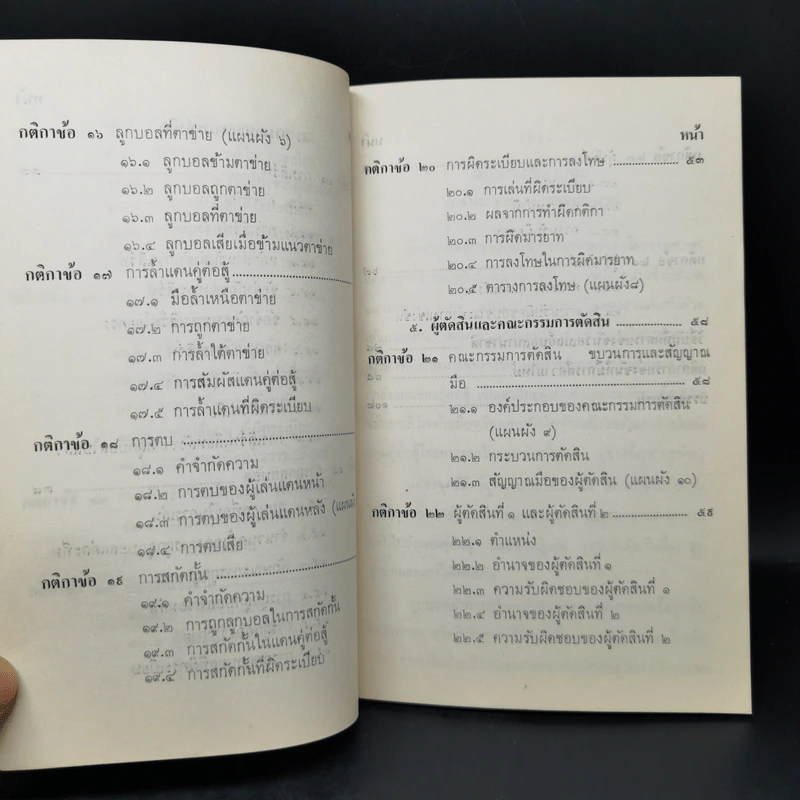 กติกาข้อ ๑๖ ลูกบอลที่ตาข่าย (แผนผัง ๖)
๑๖.๑ ลูกบอลข้ามตาข่าย
๑๖.๒ ลูกบอลถูกตาข่าย
๑๖.๓ ลูกบอลที่ตาข่าย
๑๖.๔ ลูกบอลเสียเมื่อข้ามแนวตาข่าย
กติกาข้อ ๑๗ การล้ำแดนคู่ต่อสู้
๑๗.๑ มือล้ำเหนือตาข่าย
๑๗.๒ การถูกตาข่าย
๑๗.๓ การล้ำใต้ตาข่าย
๑๗.๔ การสัมผัสแดนคู่ต่อสู้
๑๗.๕ การล้ำแดนที่ผิดระเบียบ
กติกาข้อ ๑๘ การตบ
๑๘.๑ คำจำกัดความ
๑๘.๒ การตบของผู้เล่นแดนหน้า
๑๘.๓ การตบของผู้เล่นแดนหลัง
๑๘.๔ การตบเสีย
กติกาข้อ ๑๙ การสกัดกั้น
๑๙.๑ คำจำกัดความ
๑๙.๒ การถูกลูกบอลในการสกัดกั้น
๑๙.๓ การสกัดกั้นในแดนคู่ต่อสู้
๑๙.๔ การสกัดกั้นที่ผิดระเบียบ
หน้า
กติกาข้อ ๒๐ การผิดระเบียบและการลงโทษ ๕๓
๒๐.๑ การเล่นที่ผิดระเบียบ
๒๐.๒ ผลจากการทำผิดกติกา
๒๐.๓ การผิดมารยาท
๒๐.๔ การลงโทษในการผิดมารยาท
๒๐.๕ ตารางการลงโทษ (แผนผัง๘)
๕. ผู้ตัดสินและคณะกรรมการตัดสิน ๕๘
กติกาข้อ ๒๑ คณะกรรมการตัดสิน ขบวนการและสัญญาณ
มือ ๕๘
๒๑.๑ องค์ประกอบของคณะกรรมการตัดสิน
(แผนผัง ๙)
๒๑.๒ กระบวนการตัดสิน
๒๑.๓ สัญญาณมือของผู้ตัดสิน (แผนผัง ๑๐)
กติกาข้อ ๒๒ ผู้ตัดสินที่ ๑ และผู้ตัดสินที่ ๒ ๕๙
๒๒.๑ ตำแหน่ง
๒๒.๒ อำนาจของผู้ตัดสินที่ ๑
๒๒.๓ ความรับผิดชอบของผู้ตัดสินที่ ๑
๒๒.๔ อำนาจของผู้ตัดสินที่ ๒
๒๒.๕ ความรับผิดชอบของผู้ตัดสินที่ ๒